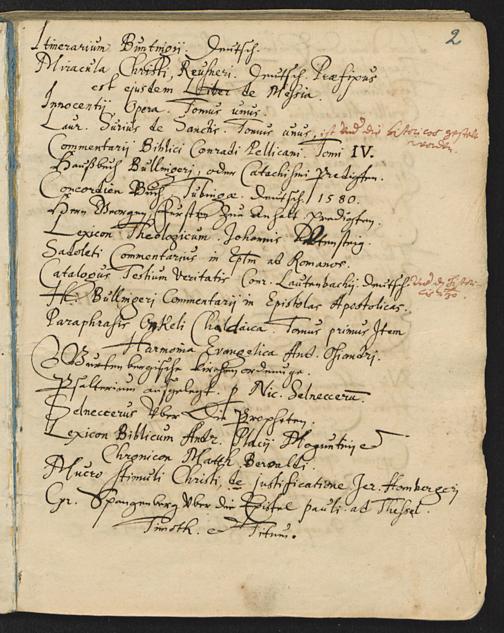 2
Itinerarium Buntingij. deutsch.
Miracula Christi, Reusneri. deutsch. Praefixus
est ejusdem Liber de Messia.
Innocentij Opera. Tomus unus.
Laur. Surius de Sanctis. Tomus unus, ist und die historicos gestelt
worden.
Commentarij Biblici Conradi Pellicani. Tomi IV.
Haußbuch Bullingeri, oder Catechismi predigten.
Concordien Buch Tubingae. deutsch. 1580.
Hern Georgen, Fürsten zu Anhalt predigten.
Lexicon Theologicum. Johannis Altensteig.
Sadoleti Commentarius in Eplm ad Romanos.
Catalogus Testium Veritatis Conr. Lautenbachij. deutsch.
H. Bullingerj Commentarij in Epistolas Apostolicas.
Paraphrasis Onkeli Chaldaica. Tomus primus Item
Harmonia Evangelica And. Osiandri.
Wurtenbergische kirchenordnunge.
Psalterium außgelegt. p Nic. Selneccerū.
Selneccerus über die Propheten.
Lexicon Biblicum Andr. Placij Moguntini et
Chronicon Matth. Beroaldi.
Mucro stimuli Christi, de Justificatione Jer. Hombergerj
Cyr. Spangenberg über die Epistel pauli. ad Thessal.
Timoth. et Titum.